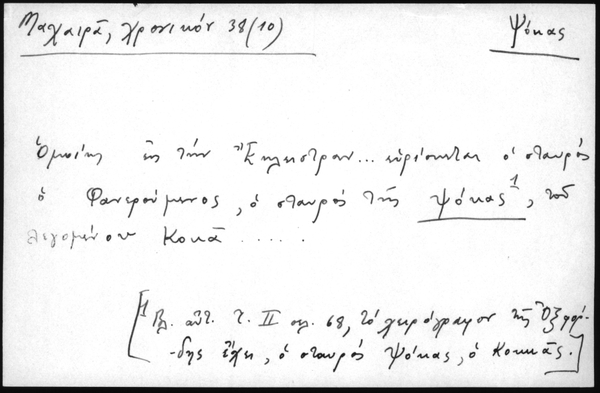 Μαχαιρᾶ, χρονικόν 38(10)
Ψόκας
Ὁμοίως εἰς τὴν Ἔγκλειστραν... εὑρίσκεται ὁ σταυρὸς
ὁ Φανερούμενος, ὁ σταυρὸς τῆς Ψόκας¹, τοῦ
λεγομένου Κοκᾶ .....
[1 Βλ. αὐτ. τ. II σελ. 68, τὸ χειρόγραφον τῆς Ὀξφόρ-
-δης ἔχει, ὁ σταυρὸς Ψόκας, ὁ Κοκκᾶς.]